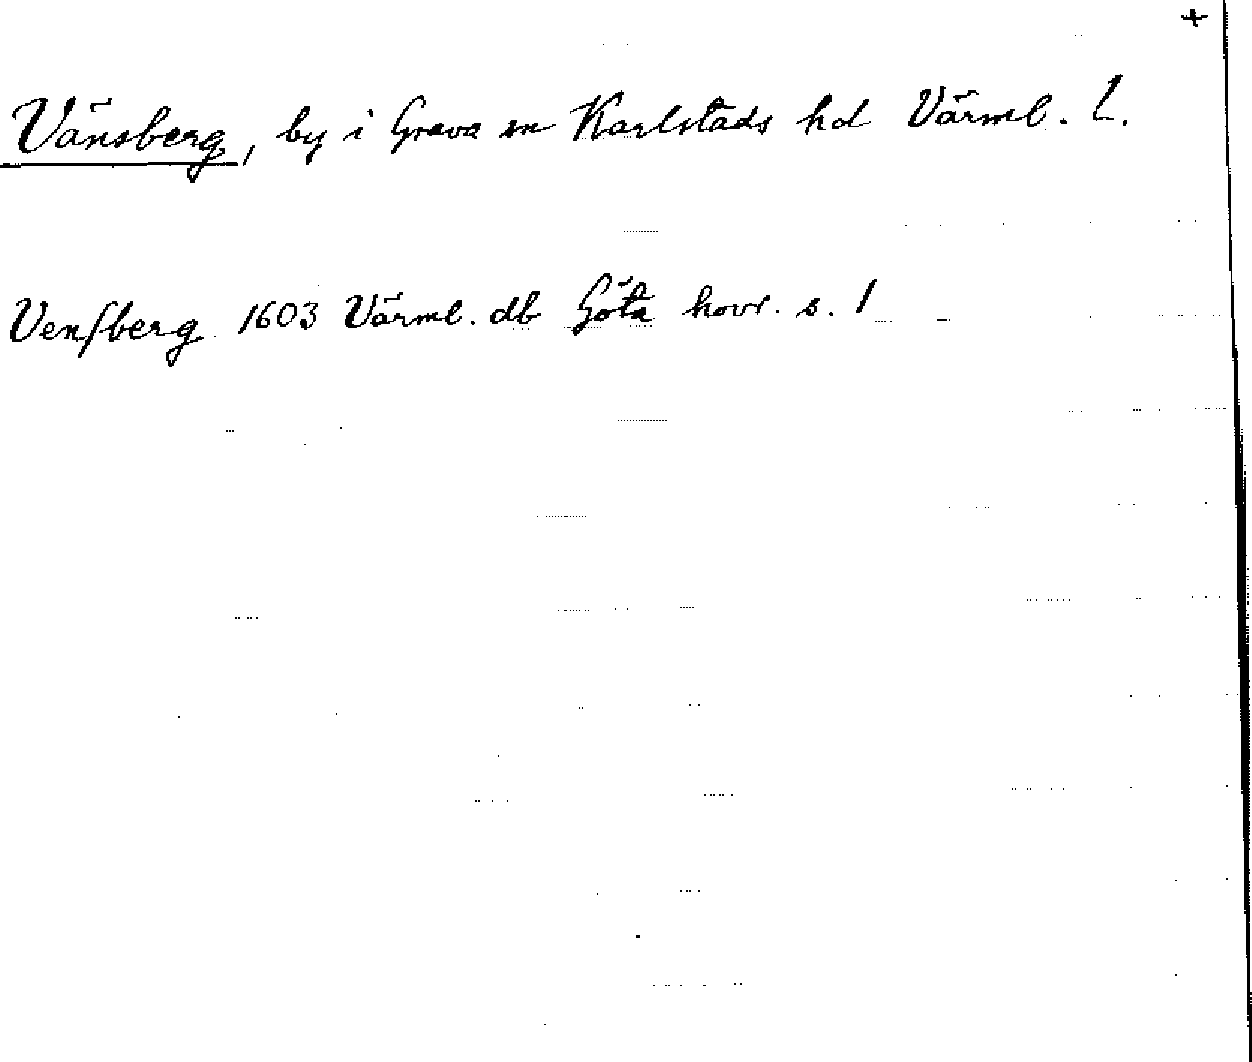 +
Vänsberg, by i Grava sn Karlstads hd Värml. L.
Venſberg 1603 Värml. db Göta hovr. s. 1